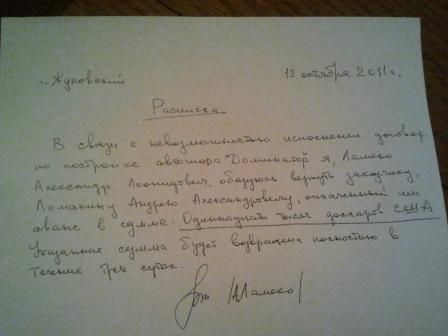 г. Жуковский 12 октября 2011г.
Расписка
В связи с невозможностью исполнении договор
по постройке автожира "Доминатор" я, Ламеко
Александр Леонидович, обязуюсь вернуть заказчику,
Ломакину Андрею Александровичу, оплаченный им
аванс в сумме: Одиннадцать тысяч долларов США
Указанная сумма будет возвращена полностью в
течение трёх суток.
/Ламеко/